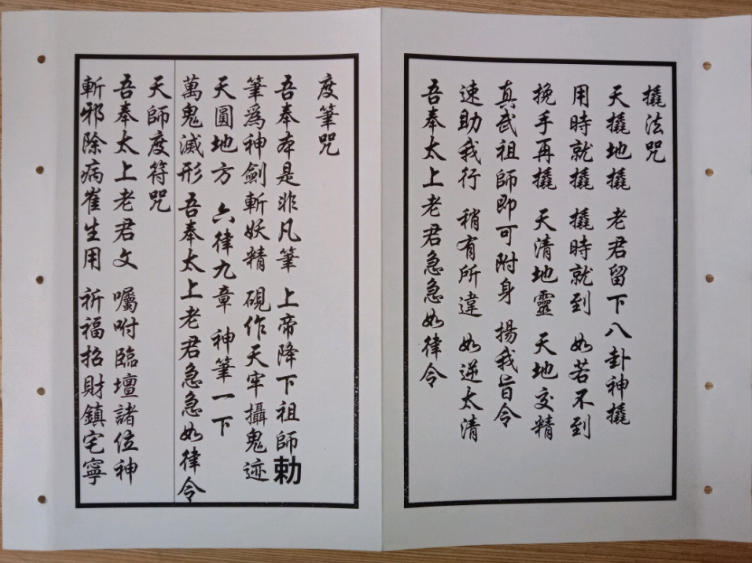 撬法咒
天撬地撬 老君留下八卦神撬
用時就撬 撬時就到 如若不到
挽手再撬 天清地靈 天地交精
真武祖師即可附身 揚我旨令
速助我行 稍有所違 如逆太清
吾奉太上老君急急如律令
度筆咒
吾奉本是非凡筆 上帝降下祖師勅
筆爲神劍斬妖精 硯作天牢攝鬼迹
天圓地方 六律九章 神筆一下
萬鬼滅形 吾奉太上老君急急如律令
天師度符咒
吾奉太上老君文 囑咐臨壇諸位神
斬邪除病崔生用 祈福招財鎮宅寧